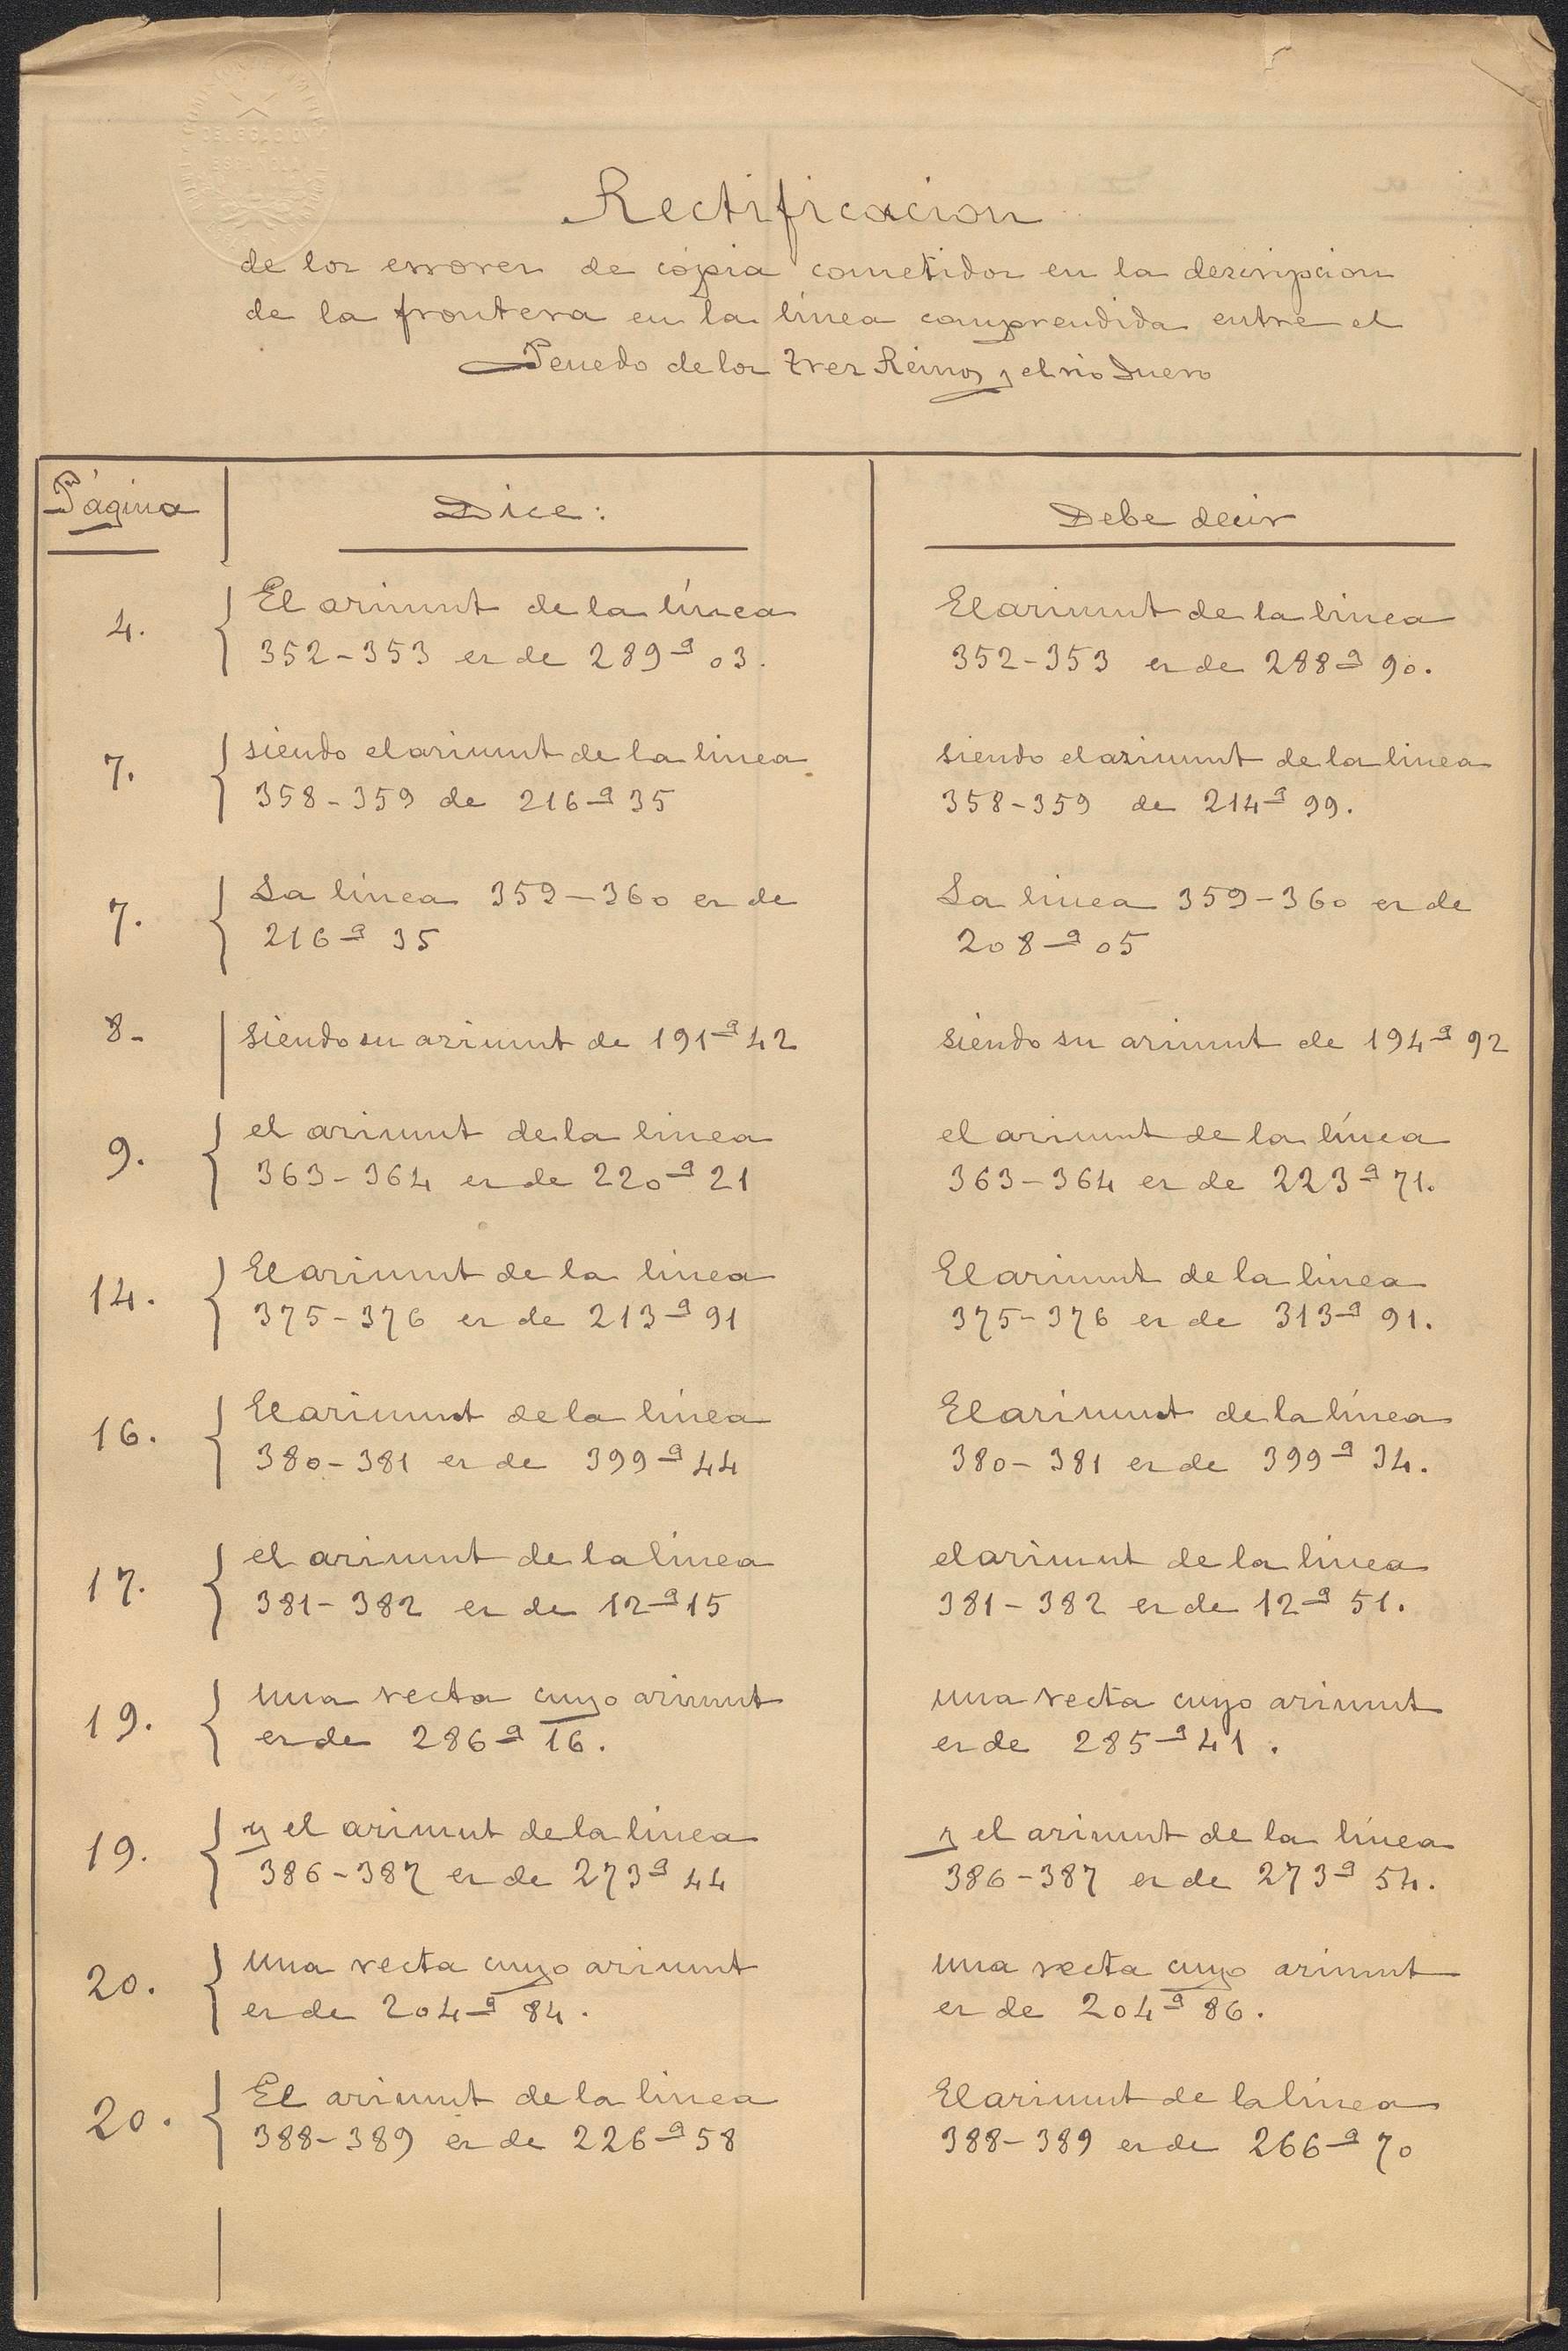 DELEGACION
ESPAÑOLA
Rectificacion
de los errores de cópia cometidos en la descripcion
de la frontera en la línea comprendida entre el
Penedo de los Tres Reinos y el rio Duero
Página Dice: Debe decir
4. El azimut de la línea El azimut de la linea
352-353 es de 289-g 03. 352-353 es de 288-g 90.
7. siendo el azimut de la linea siendo el azimut de la linea
358-359 de 216-g 35 358-359 de 214-g 99.
7. La linea 359-360 es de La linea 359-360 es de
216-g 35 208-g 05
8- siendo su azimut de 191-g 42 siendo su azimut de 194-g 92
9. el azimut de la linea el azimut de la línea
363-364 es de 220-g 21 363-364 es de 223-g 71.
14. El azimut de la linea El azimut de la linea
375-376 es de 213-g 91 375-376 es de 313-g 91.
16. El azimut de la línea El azimut de la línea
380-381 es de 399-g 44 380-381 es de 399-g 34.
17. el azimut de la línea el azimut de la línea
381-382 es de 12-g 15 381-382 es de 12-g 51.
19. una recta cuyo azimut una recta cuyo azimut
es de 286-g 16. es de 285-g 41.
19. y el azimut de la línea y el azimut de la línea
386-387 es de 273-g 44 386-387 es de 273-g 54.
20. una recta cuyo azimut una recta cuyo azimut
es de 204-g 84. es de 204-g 86.
20. El azimut de la linea El azimut de la línea
388-389 es de 226-g 58 388-389 es de 266-g 70